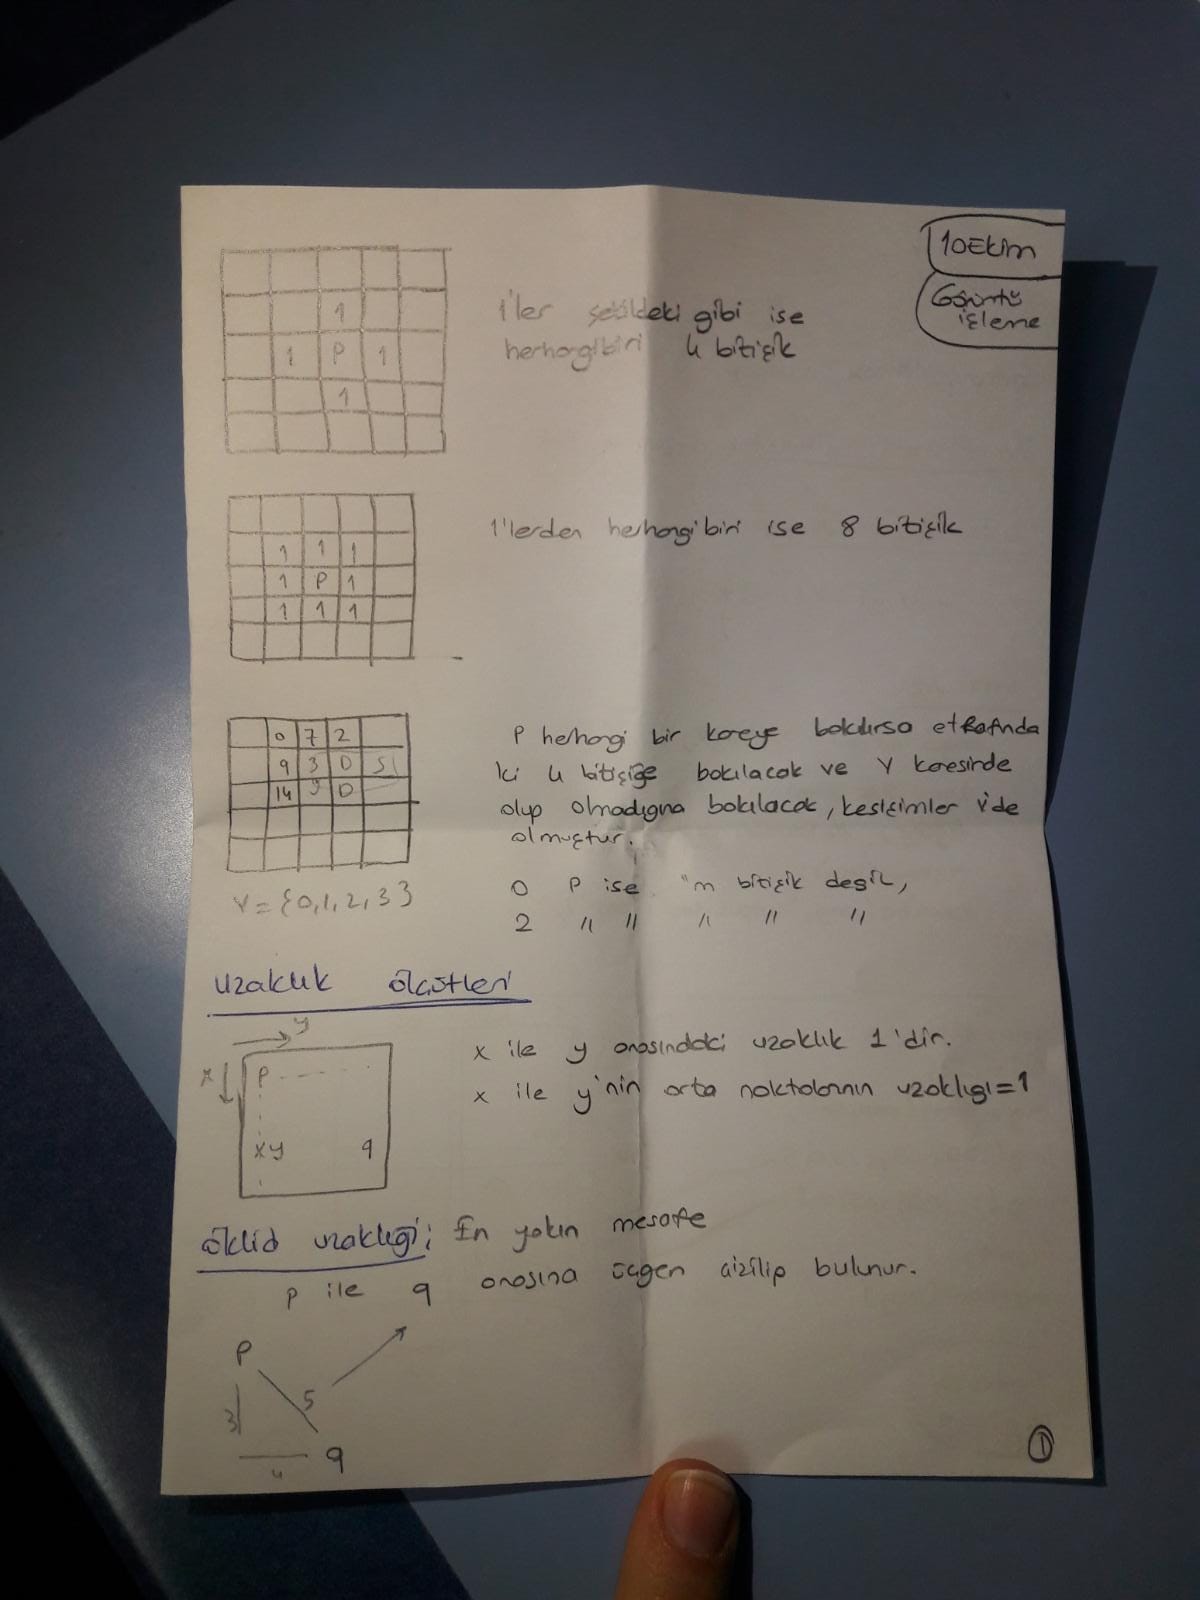 10Ekim
Görüntü
işleme
1
1 P 1
1
1'ler şekildeki gibi ise
herhangibiri 4 bitişik
1 1 1
1 P 1
1 1 1
1'lerden herhangi biri ise 8 bitişik
0 7 2
9 3 0 5
14 9 0
V = {0,1,2,3}
P herhangi bir kareye bakılırsa etrafında
ki 4 bitişiğe bakılacak ve V karesinde
olup olmadığına bakılacak, kesişimler V'de
olmuştur.
0 P ise "m bitişik değil,
2 " " " " "
uzaklık ölçütleri
y
x
P
xy q
x ile y arasındaki uzaklık 1'dir.
x ile y'nin orta noktalarının uzaklığı=1
öklid uzaklığı; En yakın mesafe
p ile q arasına üçgen çizilip bulunur.
P
3 5
4 q
1